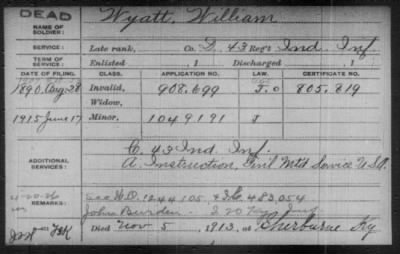 DEAD
NAME OF SOLDIER: Wyatt, William
SERVICE: Late rank, Co. D, 43 Reg't Ind. Inf.
TERM OF SERVICE: Enlisted , 1 Discharged , 1
DATE OF FILING. CLASS. APPLICATION NO. LAW. CERTIFICATE NO.
1890 Aug. 28 Invalid, 908.699 J.O 805.819
Widow,
1915 June 17 Minor, 1049191 J
ADDITIONAL SERVICES: C. 43 Ind. Inf.
A. Instruction, Mtd Service U.S.A.
4-20-26 See 1244105, 483,054
REMARKS: John Burden
Died Nov 5, 1913, at Sherburne Ky